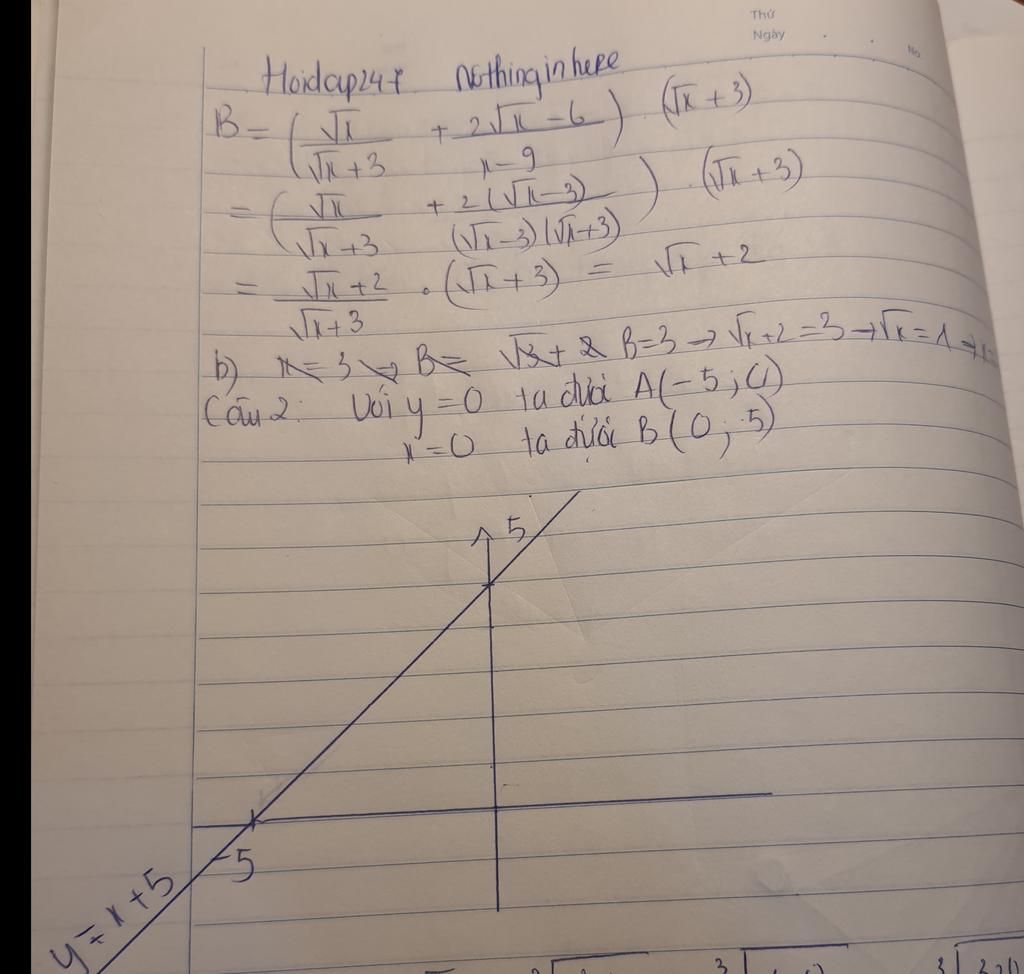 Thứ
Ngày . .
No
Hoidap247 Nothinginhere
B = (√x/(√x+3) + (2√x-6)/(x-9)) (√x+3)
= (√x/(√x+3) + 2(√x-3)/((√x-3)(√x+3))) . (√x+3)
= (√x+2)/(√x+3) . (√x+3) = √x+2
b) x=3 → B = √3+2 B=3 → √x+2=3 → √x=1 →
Câu 2: Với y=0 ta được A(-5; 0)
x=0 ta được B(0; 5)
5
-5
y=x+5